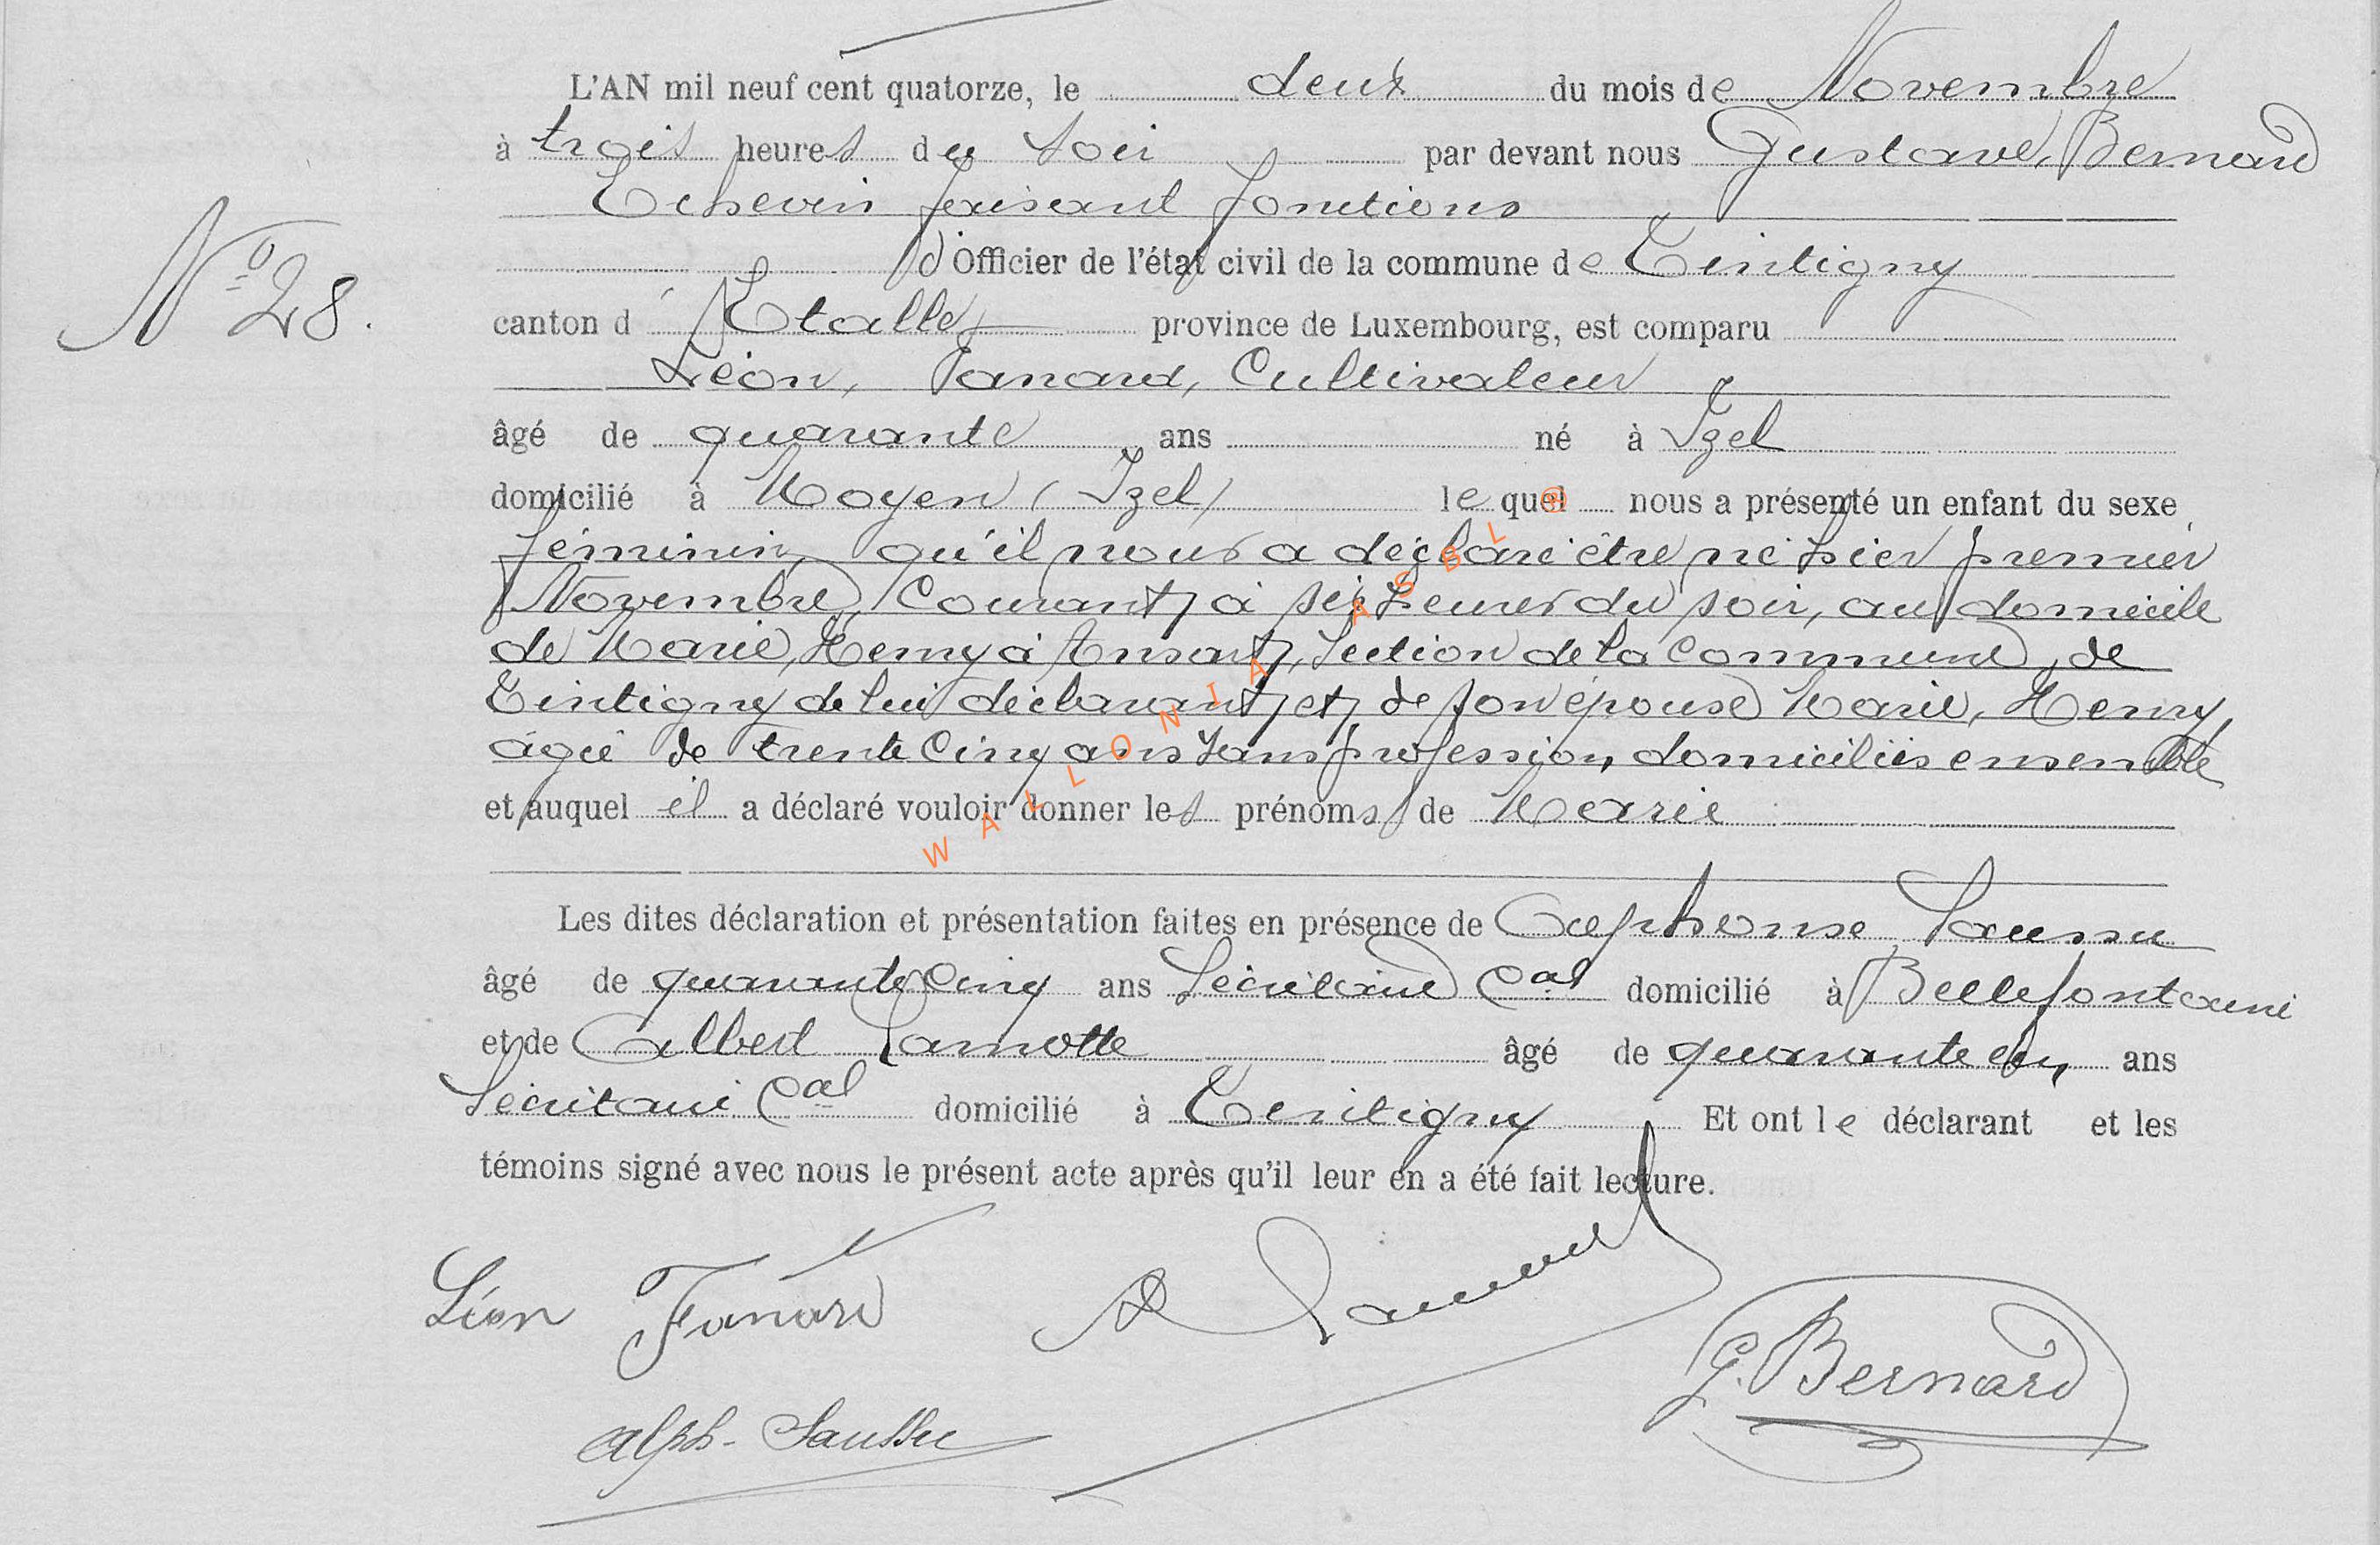 L'AN mil neuf cent quatorze, le deux du mois de Novembre
à trois heures du soir par devant nous Gustave, Bernard
Echevin faisant fonctions
d'Officier de l'état civil de la commune de Tintigny
N° 28.
canton d' Etalle province de Luxembourg, est comparu
Léon, Fanard, Cultivateur
âgé de quarante ans né à Izel
domicilié à Moyen (Izel) le quel nous a présenté un enfant du sexe
féminin, qu'il nous a déclaré être né hier premier
Novembre, Courant, à six heures du soir, au domicile
de Marie, Henry à Ansart, Section de la Commune, de
Tintigny de lui déclarant, et, de son épouse Marie, Henry,
âgée de trente cinq ans sans profession, domiciliés ensemble
et auquel il a déclaré vouloir donner les prénoms de Marie
Les dites déclaration et présentation faites en présence de Alphonse, Saussu
âgé de quarante cinq ans Secrétaire Cal domicilié à Bellefontaine
et de Albert Lamotte âgé de quarante ans
Secrétaire Cal domicilié à Tintigny Et ont le déclarant et les
témoins signé avec nous le présent acte après qu'il leur en a été fait lecture.
Léon Fanard
G. Bernard
Alph. Saussu
WALLONIA ASBL @